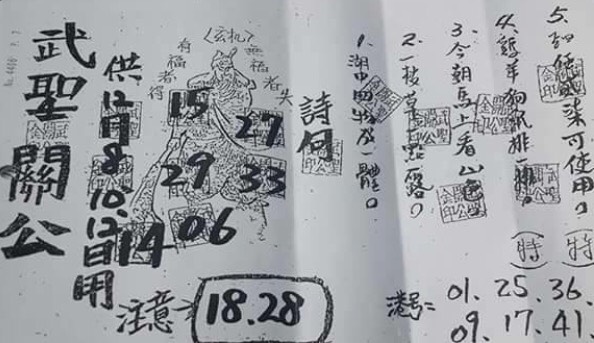 武聖關公
供12月8.10.12日用
〈玄机〉
有福者得
無福者失
15
27
29
33
14 06
注意→ 18.28
詩句
1.湖中四物成一體。
2.一枝草一點露。
3.今朝馬上看山
4.龍羊狗 排一
5. 柒可使用。
(特) (特)
港号=
01. 25. 36.
09. 17. 41.